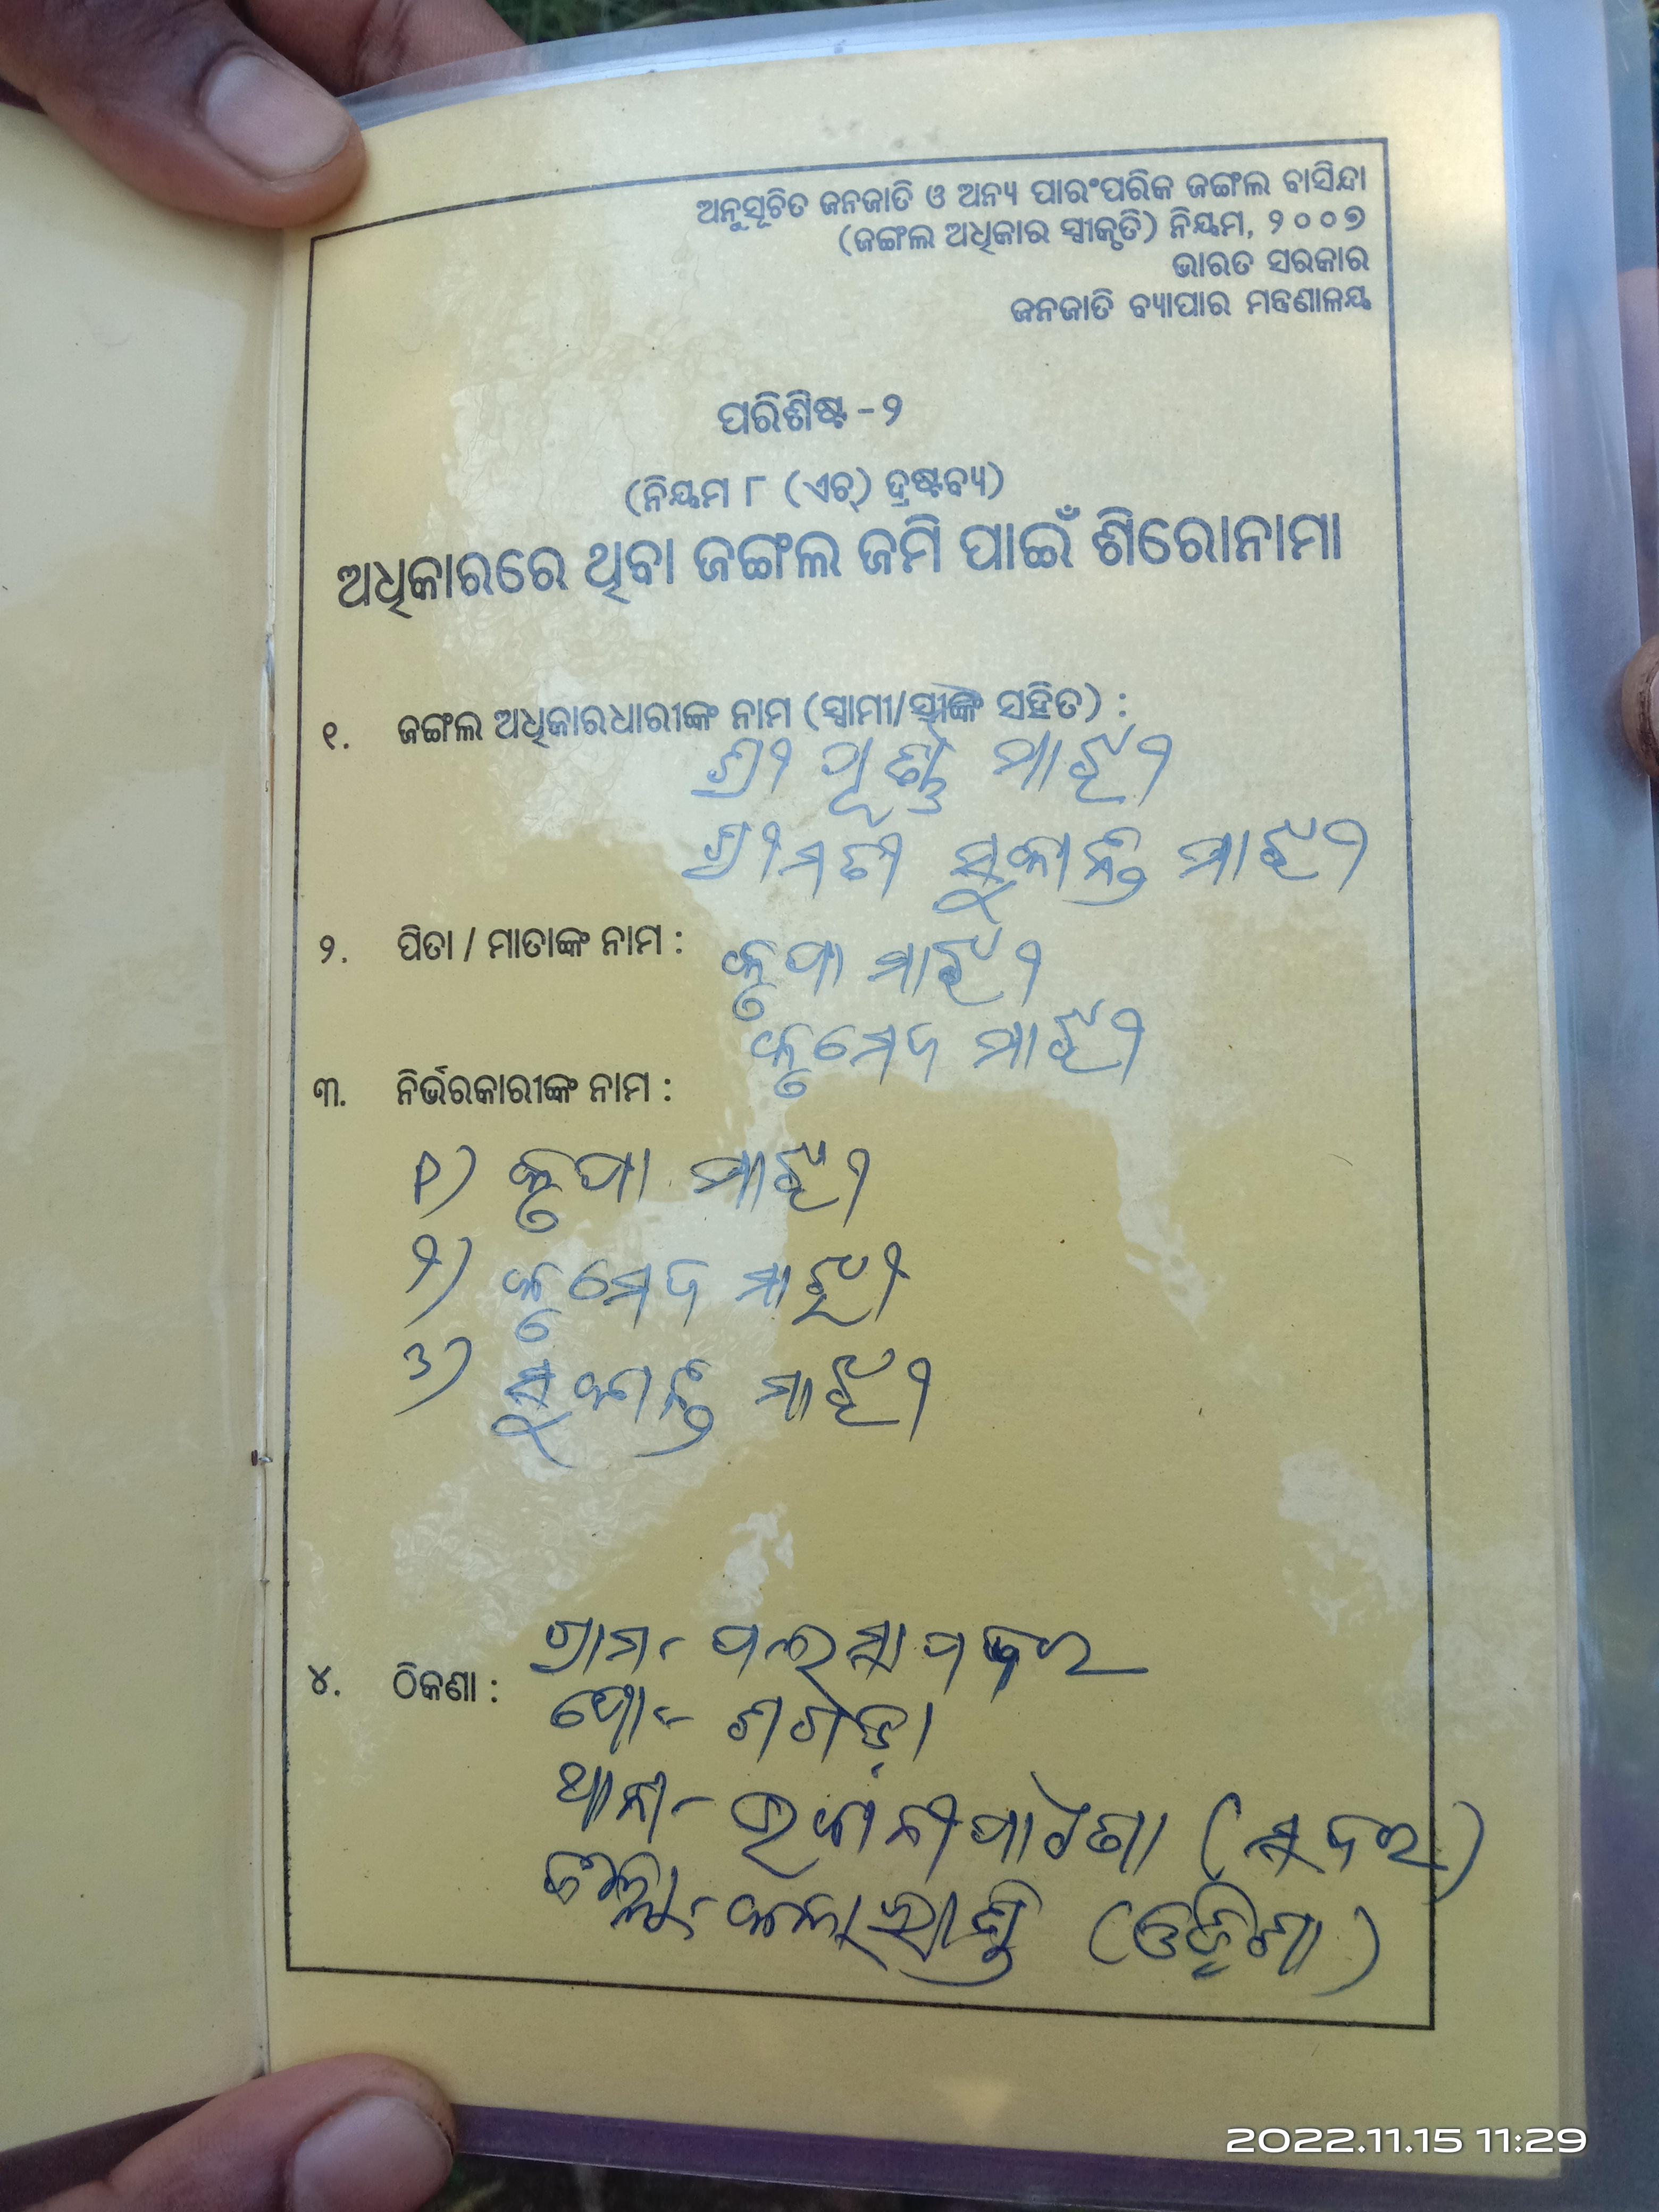 ଅନୁସୂଚିତ ଜନଜାତି ଓ ଅନ୍ୟ ପାରଂପରିକ ଜଙ୍ଗଲ ବାସିନ୍ଦା
(ଜଙ୍ଗଲ ଅଧିକାର ସ୍ୱୀକୃତି) ନିୟମ, ୨୦୦୭
ଭାରତ ସରକାର
ଜନଜାତି ବ୍ୟାପାର ମନ୍ତ୍ରଣାଳୟ
ପରିଶିଷ୍ଟ - ୨
(ନିୟମ ୮ (ଏଚ୍) ଦ୍ରଷ୍ଟବ୍ୟ)
ଅଧିକାରରେ ଥିବା ଜଙ୍ଗଲ ଜମି ପାଇଁ ଶିରୋନାମା
୧. ଜଙ୍ଗଲ ଅଧିକାରଧାରୀଙ୍କ ନାମ (ସ୍ୱାମୀ/ସ୍ତ୍ରୀଙ୍କ ସହିତ) :
ଶ୍ରୀ ପୂର୍ଣ୍ଣ ମାଝୀ
ଶ୍ରୀମତୀ ସୁକାନ୍ତି ମାଝୀ
୨. ପିତା / ମାତାଙ୍କ ନାମ : କୃପା ମାଝୀ
କୁମେଦ ମାଝୀ
୩. ନିର୍ଭରକାରୀଙ୍କ ନାମ :
୧) କୃପା ମାଝୀ
୨) କୁମେଦ ମାଝୀ
୩) ସୁକାନ୍ତି ମାଝୀ
ଗ୍ରାମ-
୪. ଠିକଣା :
ପୋ- ଶଗଡ଼ା
ଥାନା- ଭବାନୀପାଟଣା (ସଦର)
ଜିଲ୍ଲା- କଳାହାଣ୍ଡି (ଓଡ଼ିଶା)
2022.11.15 11:29